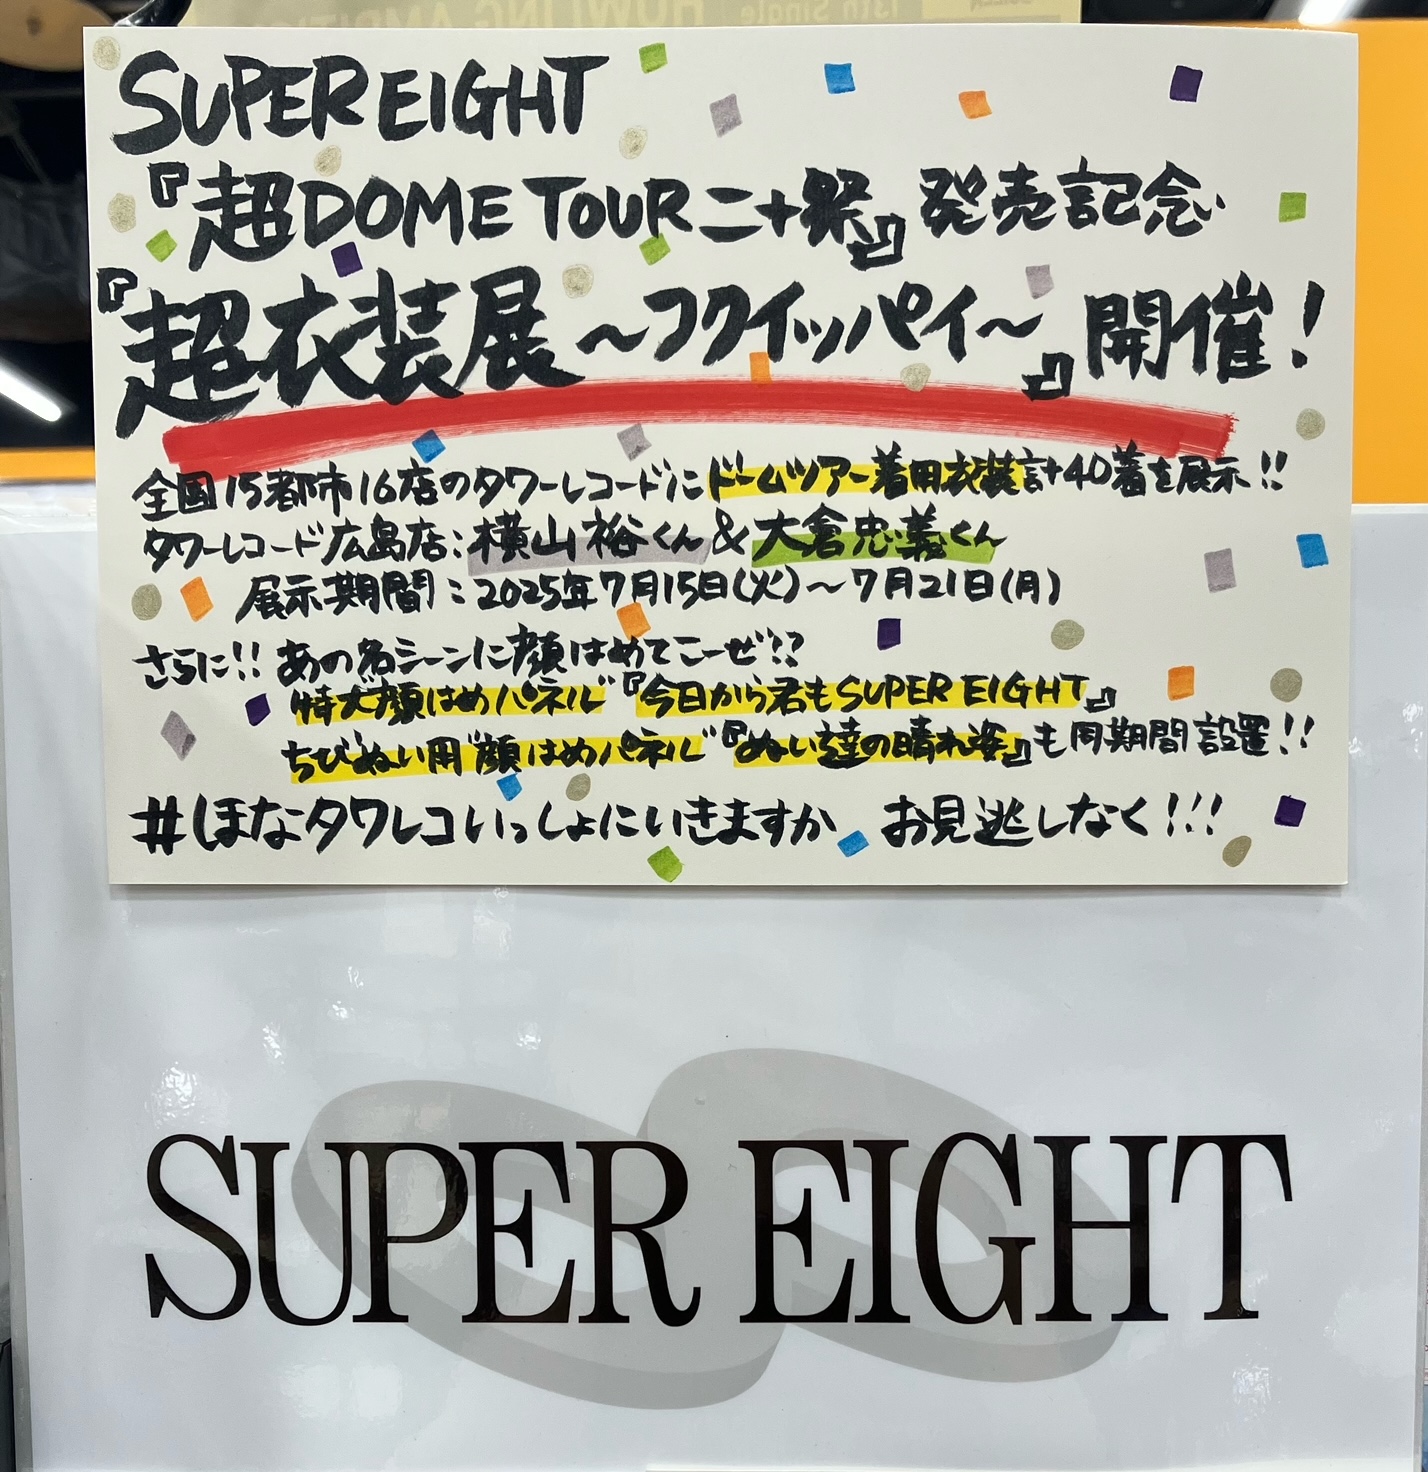 13th Single HOWLING AMBITIO
SUPER EIGHT
『超DOME TOUR 二十祭』発売記念
『超衣装展〜フクイッパイ〜』開催!
全国15都市16店のタワーレコードにドームツアー着用衣装計40着を展示!!
タワーレコード広島店:横山裕くん&大倉忠義くん
展示期間:2025年7月15日(火)〜7月21日(月)
さらに!! あの名シーンに顔はめてこーぜ!?
特大顔はめパネル『今日から君もSUPER EIGHT』
ちびぬい用顔はめパネル『ぬい達の晴れ姿』も同期間設置!!
#ほなタワレコいっしょにいきますか お見逃しなく!!!
SUPER EIGHT